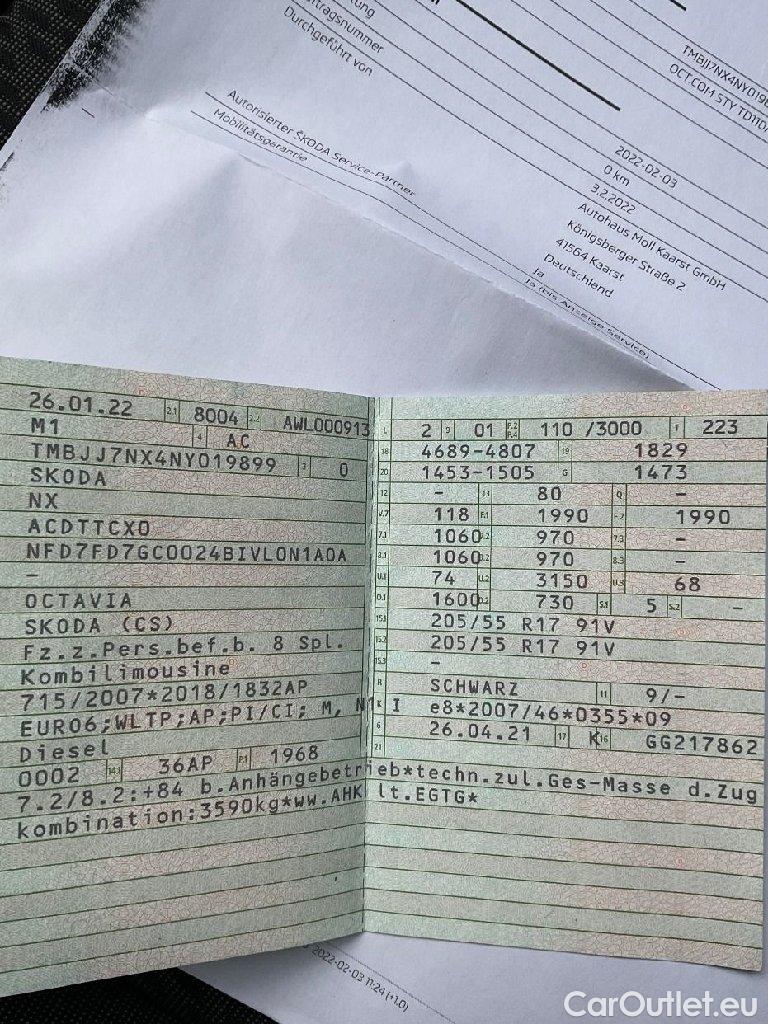 tragsnummer
Durchgeführt von
TMBJJ7NX4NY019
OCT.COM STY TD110
2022-02-03
0 km
3.2.2022
Autohaus Moll Kaarst GmbH
Königsberger Straße 2
41564 Kaarst
Deutschland
Autorisierter ŠKODA Service-Partner
Mobilitätsgarantie
Ja
Ja (bis Anzeige Service)
26.01.22 2.1 8004 2.2 AWL000913
M1 4 AC
TMBJJ7NX4NY019899 3 0
SKODA
NX
ACDTTCX0
NFD7FD7GC0024BIVLON1A0A
-
OCTAVIA
SKODA (CS)
Fz.z.Pers.bef.b. 8 Spl.
Kombilimousine
715/2007*2018/1832AP
EURO6;WLTP;AP;PI/CI; M, N1 I
Diesel
0002 14.1 36AP P.1 1968
L 2 9 01 P.2 P.4 110 /3000 T 223
18 4689-4807 19 1829
20 1453-1505 G 1473
12 - 13 80 Q -
V.7 118 F.1 1990 F.2 1990
7.1 1060 7.2 970 7.3 -
8.1 1060 8.2 970 8.3 -
U.1 74 U.2 3150 U.3 68
O.1 1600 O.2 730 S.1 5 S.2 -
15.1 205/55 R17 91V
15.2 205/55 R17 91V
15.3 -
R SCHWARZ 11 9/-
K e8*2007/46*0355*09
6 26.04.21 17 K 16 GG217862
21
7.2/8.2:+84 b.Anhängebetrieb*techn.zul.Ges-Masse d.Zug
kombination:3590kg*ww.AHK lt.EGTG*
2022-02-03 11:24 (+1.0)
CarOutlet.eu